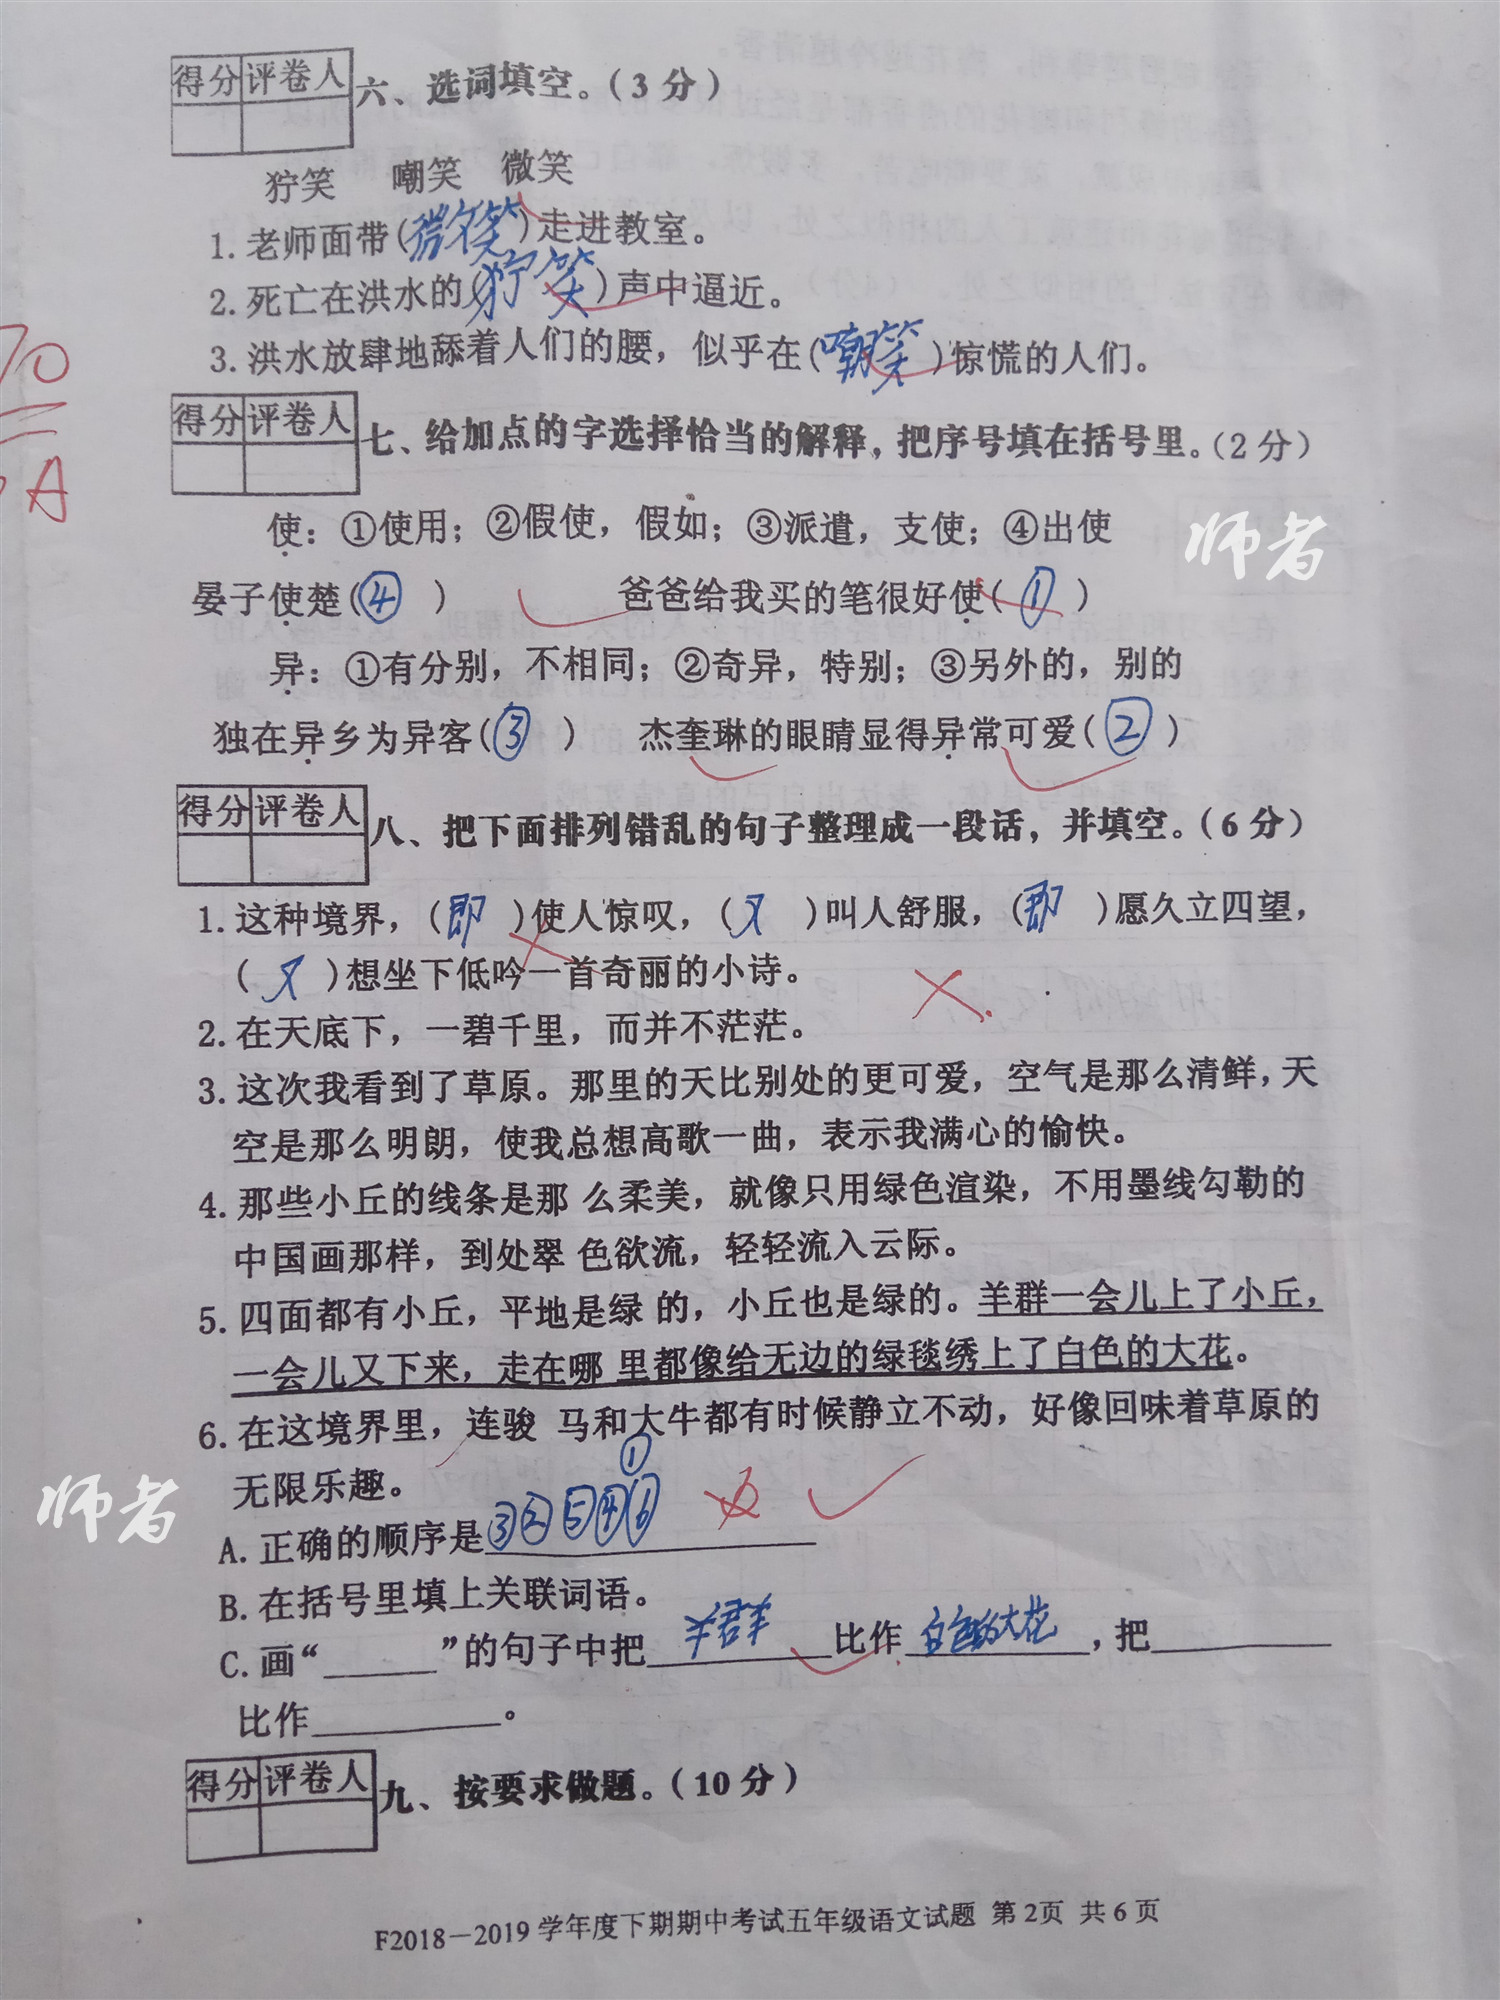 得分 评卷人
六、选词填空。(3分)
狞笑 嘲笑 微笑
1. 老师面带(微笑)走进教室。
2. 死亡在洪水的(狞笑)声中逼近。
3. 洪水放肆地舔着人们的腰，似乎在(嘲笑)惊慌的人们。
70
A
得分 评卷人
七、给加点的字选择恰当的解释，把序号填在括号里。(2分)
使：①使用；②假使，假如；③派遣，支使；④出使
师者
晏子使楚(④) 爸爸给我买的笔很好使(①)
异：①有分别，不相同；②奇异，特别；③另外的，别的
独在异乡为异客(③) 杰奎琳的眼睛显得异常可爱(②)
得分 评卷人
八、把下面排列错乱的句子整理成一段话，并填空。(6分)
1. 这种境界，(即)使人惊叹，(又)叫人舒服，(即)愿久立四望，
(又)想坐下低吟一首奇丽的小诗。
2. 在天底下，一碧千里，而并不茫茫。
3. 这次我看到了草原。那里的天比别处的更可爱，空气是那么清鲜，天
空是那么明朗，使我总想高歌一曲，表示我满心的愉快。
4. 那些小丘的线条是那 么柔美，就像只用绿色渲染，不用墨线勾勒的
中国画那样，到处翠 色欲流，轻轻流入云际。
5. 四面都有小丘，平地是绿 的，小丘也是绿的。羊群一会儿上了小丘，
一会儿又下来，走在哪 里都像给无边的绿毯绣上了白色的大花。
6. 在这境界里，连骏 马和大牛都有时候静立不动，好像回味着草原的
无限乐趣。
师者
①
A. 正确的顺序是③②⑤④⑥
B. 在括号里填上关联词语。
C. 画“______”的句子中把羊群比作白色的大花，把__________
比作__________。
得分 评卷人
九、按要求做题。(10分)
F2018－2019学年度下期期中考试五年级语文试题 第2页 共6页